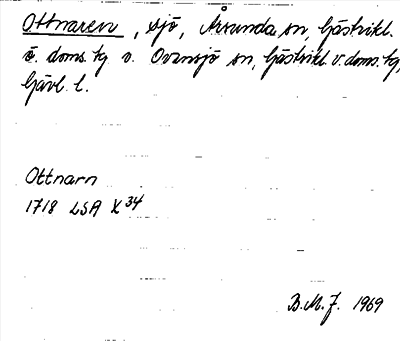 Ottnaren, sjö, Årsunda sn, Gästrikl.
ö. doms. tg v. Ovansjö sn, Gästrikl. v. doms. tg,
Gävl. l.
Ottnarn
1718 LSA X 34
B.M.J. 1969